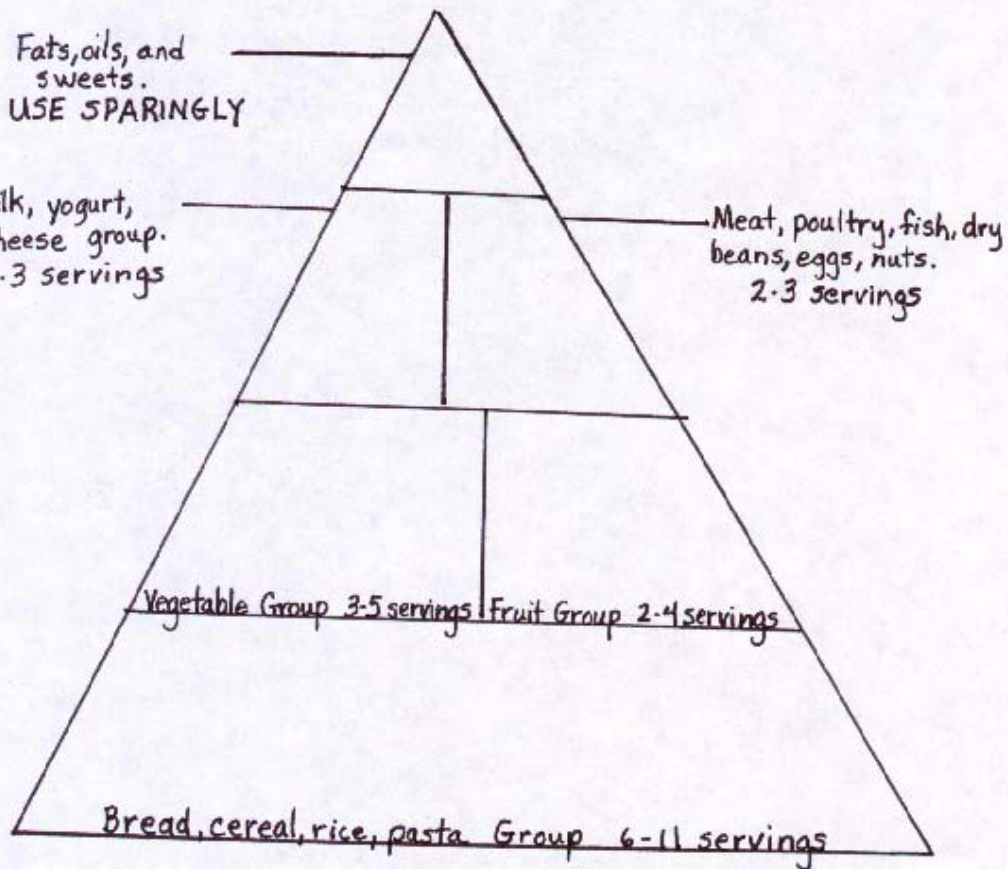 Fats, oils, and
sweets.
USE SPARINGLY
lk, yogurt,
heese group.
3 servings
Meat, poultry, fish, dry
beans, eggs, nuts.
2-3 servings
Vegetable Group 3-5 servings
Fruit Group 2-4 servings
Bread, cereal, rice, pasta Group 6-11 servings